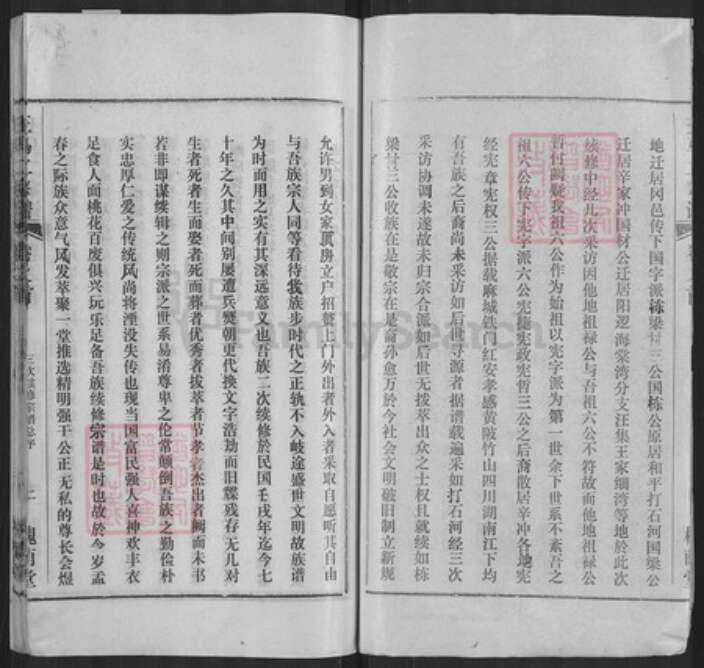 地迁居冈邑传下国字派栋梁材三公国栋公原居和平打石河国梁公
迁居辛家冲国材公迁居阳逻海棠湾分支汪集王家细湾等地於此次
续修中经几次采访因他地祖禄公与吾祖六公不符故而他地祖禄公
暂付阙疑我祖六公作为始祖以宪字派为第一世余下世系不紊吾之
祖六公传下宪字派六公宪捷宪政宪哲三公之后裔散居辛冲各地宪
经宪章宪权三公据载麻城铁门红安孝感黄陂竹山四川湖南江下均
有吾族之后裔尚未采访如后世寻源者据谱载遍采如打石河经三次
采访协调未遂故未归宗合派如后世无拨萃出众之士权且就续如栋
梁材三公收族在是敬宗在是裔外愈万於今社会文明破旧制立新规
允许男到女家顶房立户招赘上门外出者外入者采取自愿听其自由
与吾族宗人同等看待我族步时代之正轨不入岐途盛世文明故族谱
为时而用之实有其深远意义也吾族二次续修於民国壬戌年迄今七
十年之久其中间别屡遭兵燹朝更代换文字浩劫而旧牒残存无几对
生者死者生而娶者死而葬者优秀者拔萃者节孝者杰出者阙而未书
若非即谋续辑之则宗派之世系易淆尊卑之伦常颠倒吾族之勤俭朴
实忠厚仁爱之传统风尚将湮没失传也现当国富民强人喜神欢丰衣
足食人面桃花百废俱兴玩乐足备吾族续修宗谱是时也故於今岁孟
春之际族众意气风发萃聚一堂推选精明强干公正无私的尊长会煜
三次续修宗谱总序
二
槐荫堂
FamilySearch